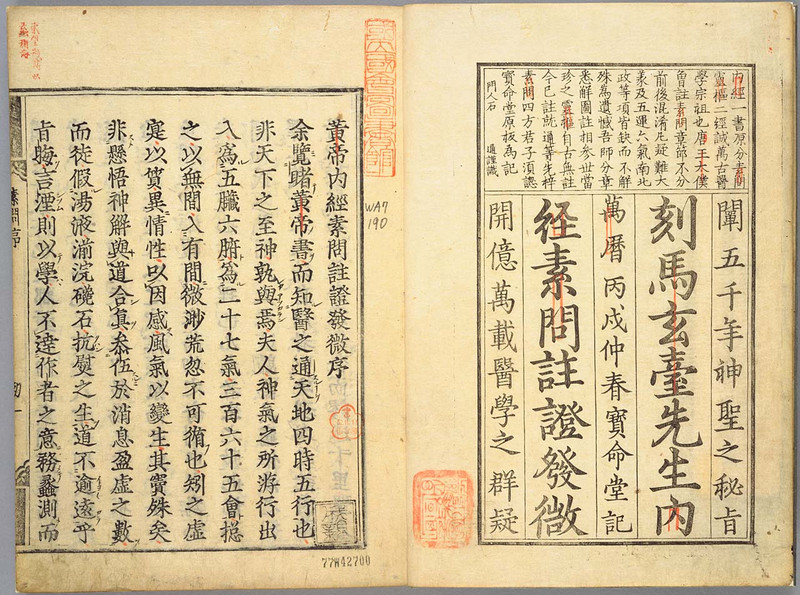 內經一書原分素問
靈樞二經誠萬古醫
學宗祖也唐王太僕
曾註素問章節不分
前後混淆凡疑難大
義及五運六氣南北
政等項皆缺而不解
殊為遺憾吾師分章
悉解圖註相参世當
珍之靈樞自古無註
今已註就通等先梓
素問四方君子須認
寶命堂原板為記
門人石 通謹識
闡五千年神聖之秘旨
刻馬玄臺先生內
萬曆丙戌仲春寶命堂記
経素問註證發微
開億萬載醫學之群疑
WA7
190
黃帝內經素問註證發微序
余覽睹黃帝書而知醫之通天地四時五行也
非天下之至神孰與焉夫人神氣之所游行出
入爲五臟六腑爲二十七氣三百六十五會揔
之以無間入有間微渺荒忽不可循也矧之虛
寔以貧異情性以因感風氣以變生其實殊矣
非懸悟神解與道合真叅伍於消息盈虛之數
而徒假湯液湔浣磯石抗熨之生道不逾遠乎
肯晦言湮則以學人不逹作者之意務蠡測而
素問序
77W42700